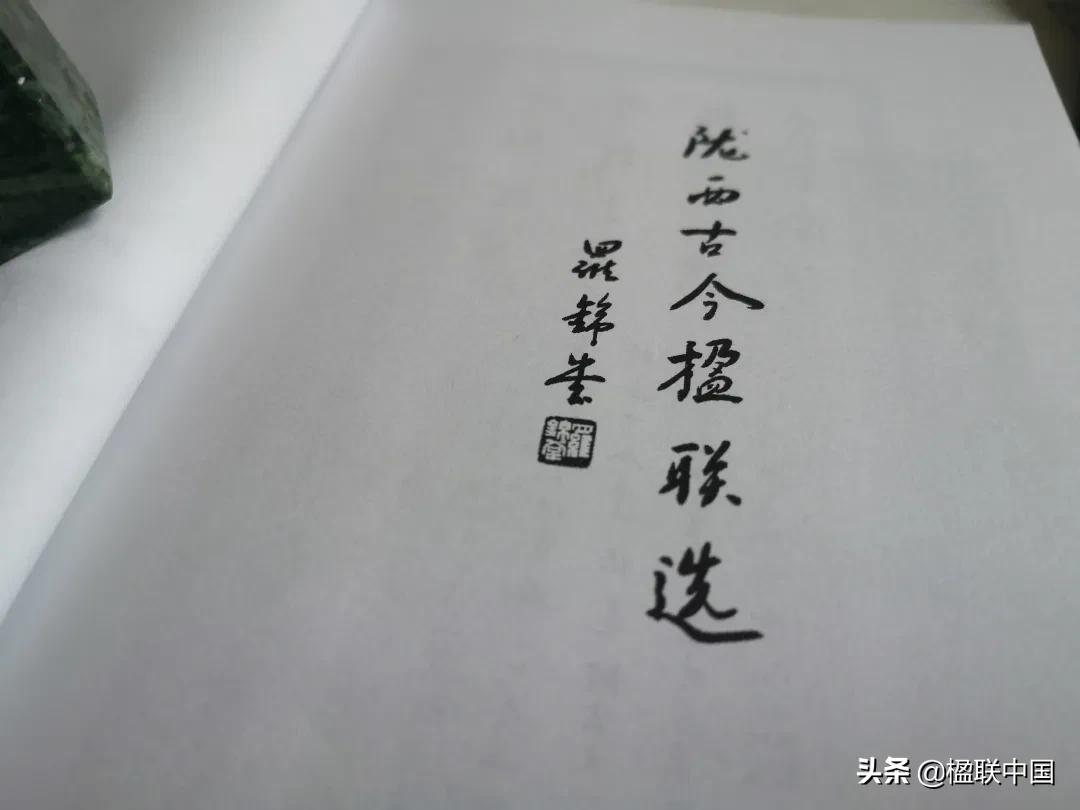 陇西古今楹联选
羅錦堂
羅錦堂
头条 @楹联中国